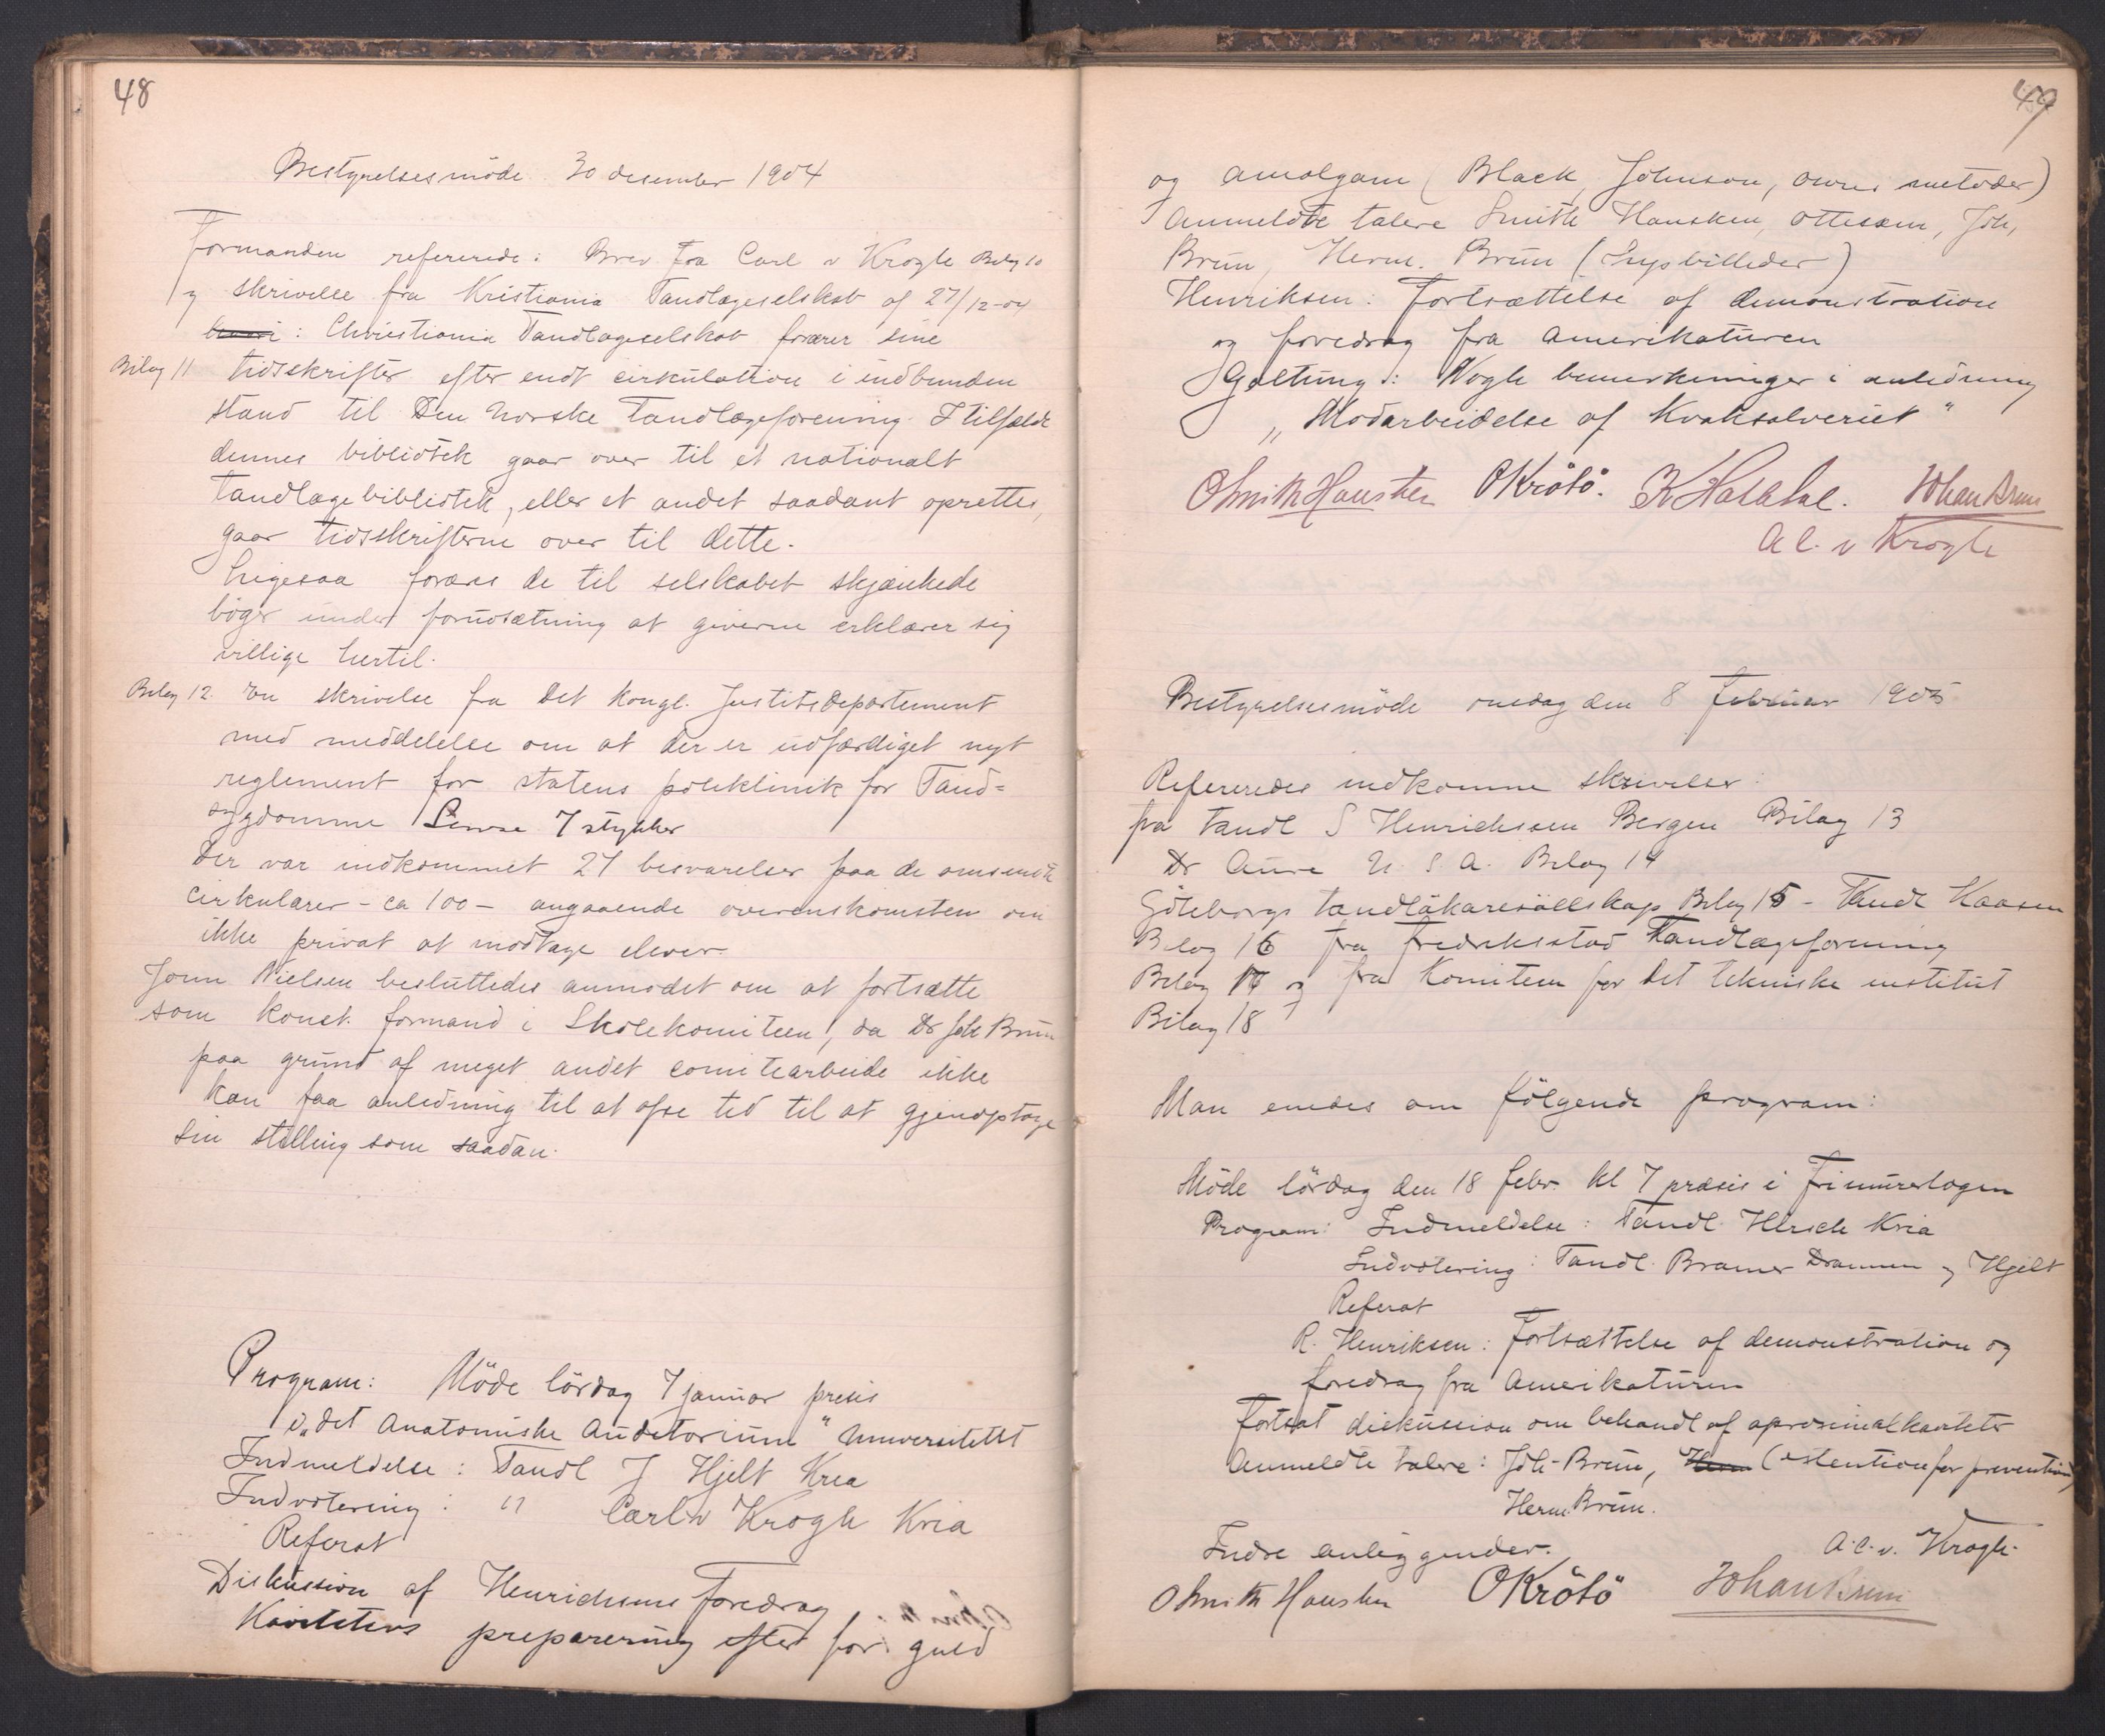 48
Bestyrelsesmöde 30 desember 1904
Formanden refererede: Brev fra Carl v Krogh Bilag 10
og skrivelse fra Kristiania Tandlægeselskab af 27/12-04
: Christiania Tandlægeselskab forærer sine
Bilag 11 tidsskrifter efter endt cirkulation i indbunden
stand til Den norske Tandlægeforening. I tilfælde
dennes bibliotek gaar over til et nationalt
tandlægebibliotek, eller et andet saadant oprettes,
gaar tidsskrifterne over til dette.
Ligesaa foræres de til selskabet skjænkede
böger under forudsætning at giverne erklærer sig
villige hertil.
Bilag 12. En skrivelse fra Det kongl. Justitsdepartement
med meddelelse om at der er udfærdiget nyt
reglement for statens poliklinik for Tand=
sygdomme 7 stykker
Der var indkommet 27 besvarelser paa de omsendte
cirkulærer - ca 100 - angaaende overenskomsten om
ikke privat at modtage elever.
Jonn Nielsen besluttedes anmodet om at fortsætte
som konst. formand i Skolekomiteen, da Dr Joh Brun
paa grund af meget andet comitearbeide ikke
kan faa anledning til at ofre tid til at gjenoptage
sin stilling som saadan.
Program: Möde lördag 7 januar precis
i „det Anatomiske Auditorium“ Universitetet
Indmeldelse: Tandl J Hjelt Kria
Indvotering: " Carl v Krogh Kria
Referat
Diskussion af Henrichsens Foredrag
Kaviteters preparering efter for guld
49
og amalgam (Black, Johnson, metoder)
Anmeldte talere Smith Housken, Ottesen, Joh,
Brun, Herm. Brun (Lysbilleder)
Henriksen: Fortsættelse af demonstration
og foredrag fra Amerikaturen
Galtung: Nogle bemerkninger i anledning
„Modarbeidelse af Kvaksalveriet“
O Smith Housken O Krötö. Johan Brun
A C. v Krogh
Bestyrelsesmöde onsdag den 8 februar 1905
Refereredes indkomne skrivelser:
fra tandl S Henrichsen Bergen Bilag 13
Dr Aure U. S. A. Bilag 14
Göteborgs tandläkaresällskap Bilag 15 - Tandl Kaasen
Bilag 16 fra Fredriksstad Tandlægeforening
Bilag 17 og fra Komiteen for Det tekniske institut
Bilag 18
Man enedes om fölgende program:
Möde lördag den 18 febr. kl 7 præcis i Frimurerlogen
Program: Indmeldelse: Tandl. Hirsch Kria
Indvotering: Tandl. Bramer Drammen og Hjelt
Referat
R. Henriksen: Fortsættelse af demonstration og
foredrag fra Amerikaturen
Fortsat diskussion om behandl af aproximalkaviteter
Anmeldte talere: Joh. Brun, Herm (extention for prevention)
Herm. Brun.
Indre anliggender.
A. C. v. Krogh.
O Smith Housken O Krötö Johan Brun